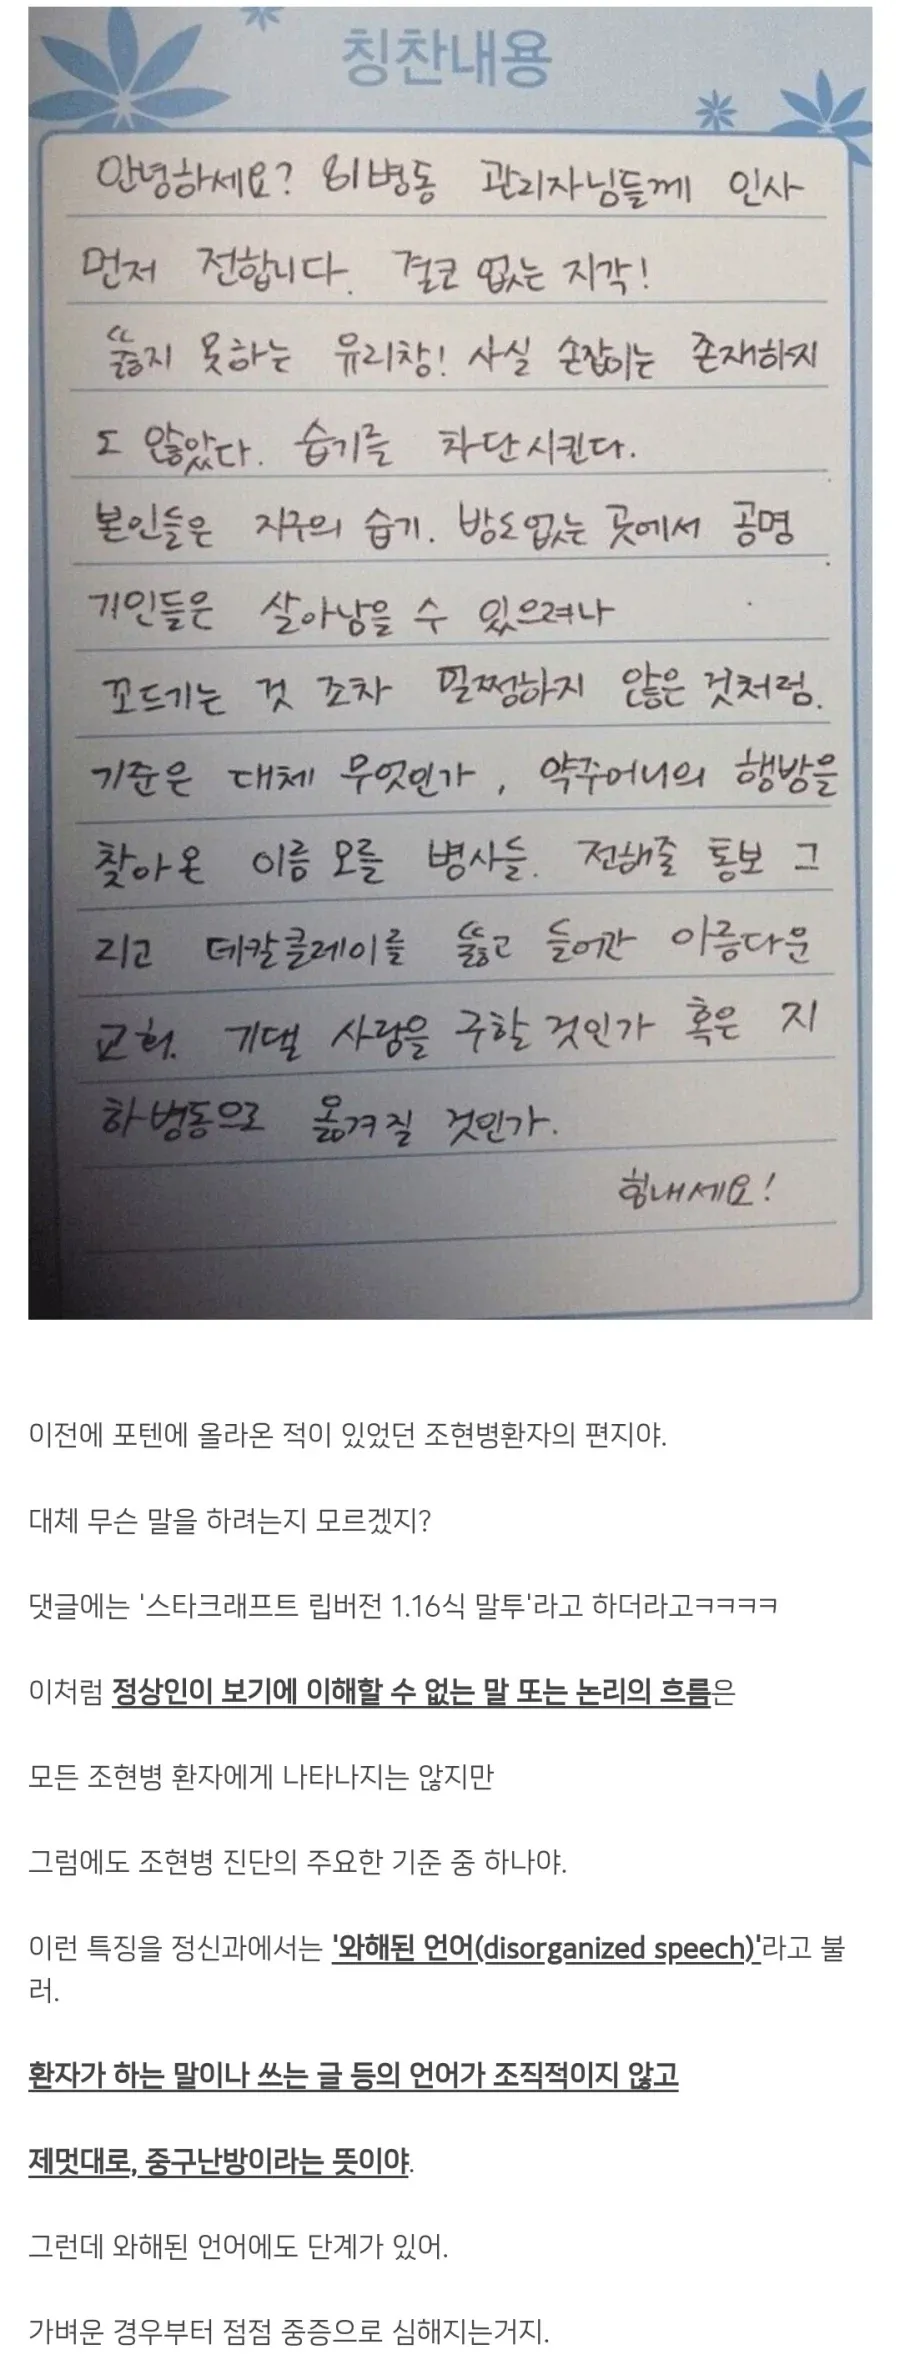 칭찬내용
안녕하세요? 81병동 관리자님들께 인사
먼저 전합니다. 결코 없는 지각!
뚫지 못하는 유리창! 사실 손잡이는 존재하지
도 않았다. 습기를 차단시킨다.
본인들은 지구의 습기. 밤도없는 곳에서 공명
기인들은 살아남을 수 있으려나
꼬드기는 것 조차 멀쩡하지 않은 것처럼.
기준은 대체 무엇인가, 약주머니의 행방을
찾아온 이름 모를 병사들. 전해줄 통보 그
리고 데칼클레이를 뚫고 들어간 아름다운
교회. 기댈 사랑을 구할 것인가 혹은 지
하병동으로 옮겨질 것인가.
힘내세요!
이전에 포텐에 올라온 적이 있었던 조현병환자의 편지야.
대체 무슨 말을 하려는지 모르겠지?
댓글에는 '스타크래프트 립버전 1.16식 말투'라고 하더라고ㅋㅋㅋㅋ
이처럼 정상인이 보기에 이해할 수 없는 말 또는 논리의 흐름은
모든 조현병 환자에게 나타나지는 않지만
그럼에도 조현병 진단의 주요한 기준 중 하나야.
이런 특징을 정신과에서는 '와해된 언어(disorganized speech)'라고 불
러.
환자가 하는 말이나 쓰는 글 등의 언어가 조직적이지 않고
제멋대로, 중구난방이라는 뜻이야.
그런데 와해된 언어에도 단계가 있어.
가벼운 경우부터 점점 중증으로 심해지는거지.